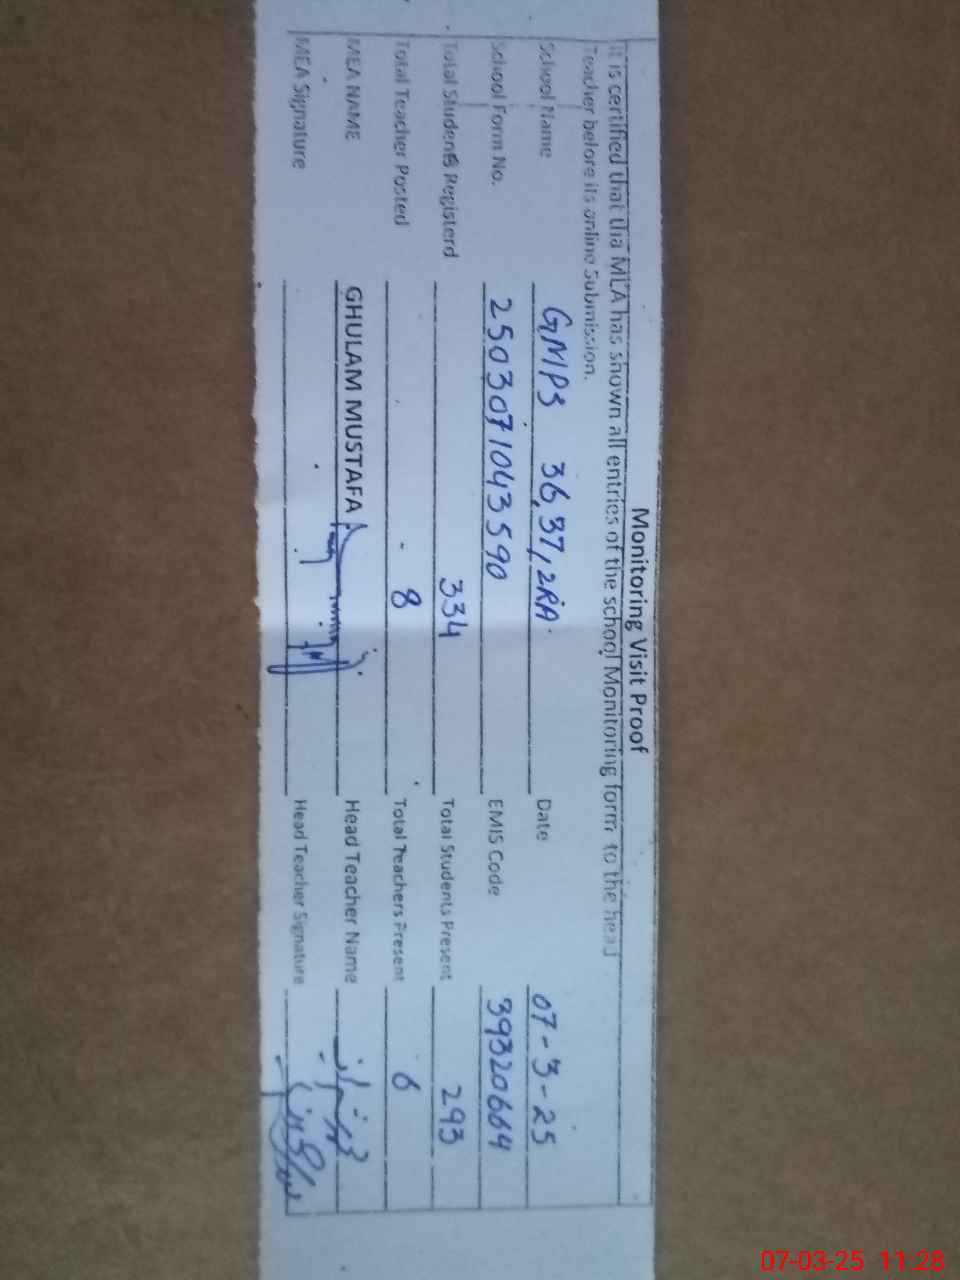 Monitoring Visit Proof
It is certified that tha MEA has shown all entries of the school Monitoring form to the head
Teacher before its online Submission.
School Name GMPS 36,37,2RA. Date 07-3-25
School Form No. 2503071043590 EMIS Code 39320664
Total Students Registerd 334 Total Students Present 293
Total Teacher Posted 8 Total Teachers Present 6
MEA NAME GHULAM MUSTAFA Head Teacher Name
MEA Signature Head Teacher Signature
07-03-25 11:28